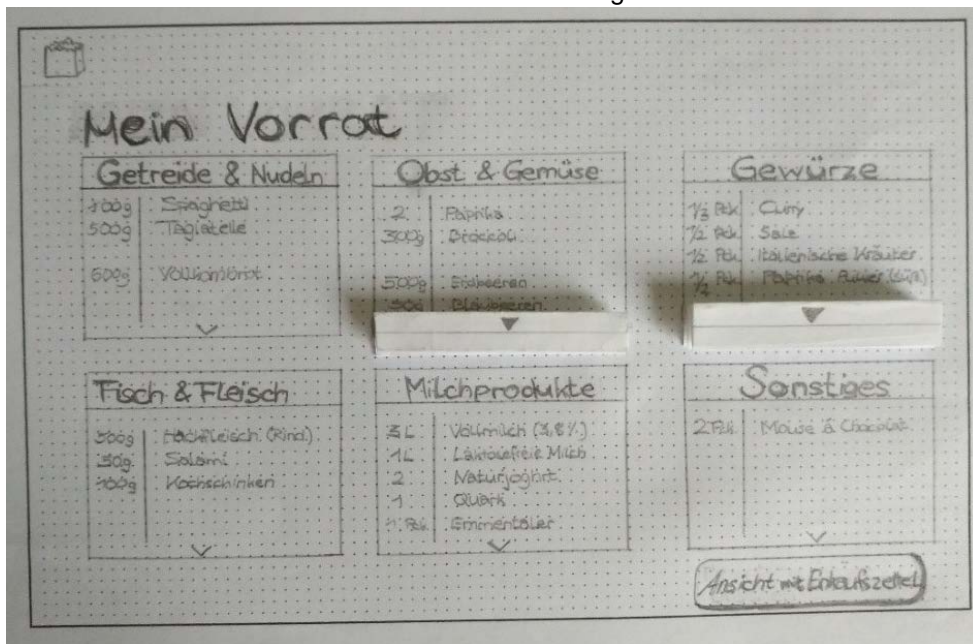 Mein Vorrat
Getreide & Nudeln
100g Spaghetti
500g Tagiatelle
600g Vollkornbrot
Obst & Gemüse
2 Paprika
300g Brokkoli
500g Erdbeeren
50g Blaubeeren
Gewürze
1/3 Pck. Curry
1/2 Pck.
1/2 Pck. Italienische Kräuter
1/2 Paprika
Fisch & Fleisch
500g Hackfleisch (Rind)
30g Salami
100g Kochschinken
Milchprodukte
3L Vollmilch (3,8%)
1L Laktosefreie Milch
2 Naturjoghurt
1 Quark
Emmentaler
Sonstiges
2 Pck.
Ansicht mit Einkaufszettel